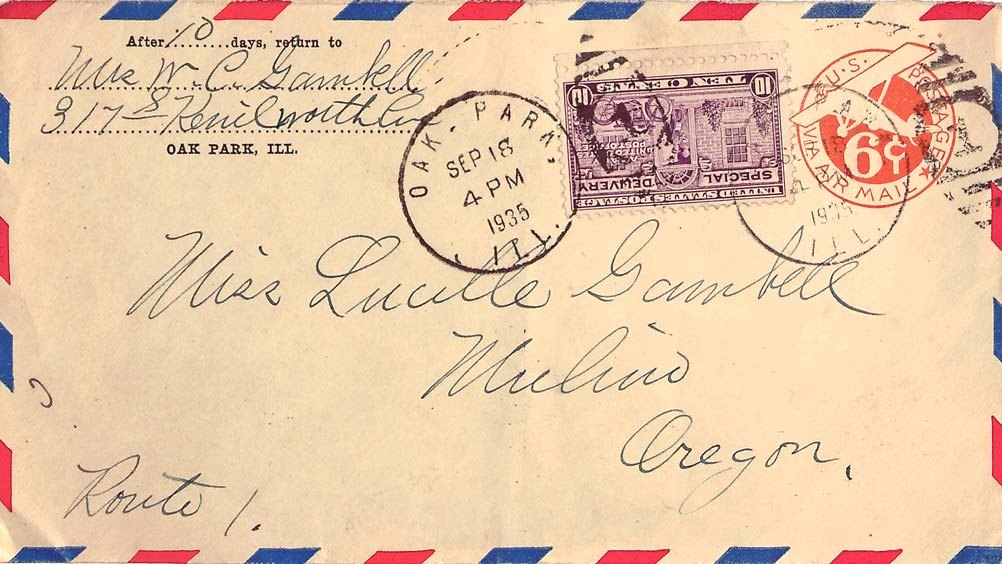 After 10 days, return to
Mrs W. C. Gambell
317 S Kenilworth Av
OAK PARK, ILL.
OAK PARK,
SEP 18
4 PM
1935
ILL.
10 TEN CENTS 10
UNITED STATES POSTAGE
SPECIAL
DELIVERY
UNITED STATES POSTAGE
U.S. POSTAGE
6¢
VIA AIR MAIL
1935
ILL.
Miss Lucille Gambell
Mulino
Oregon,
Route 1.